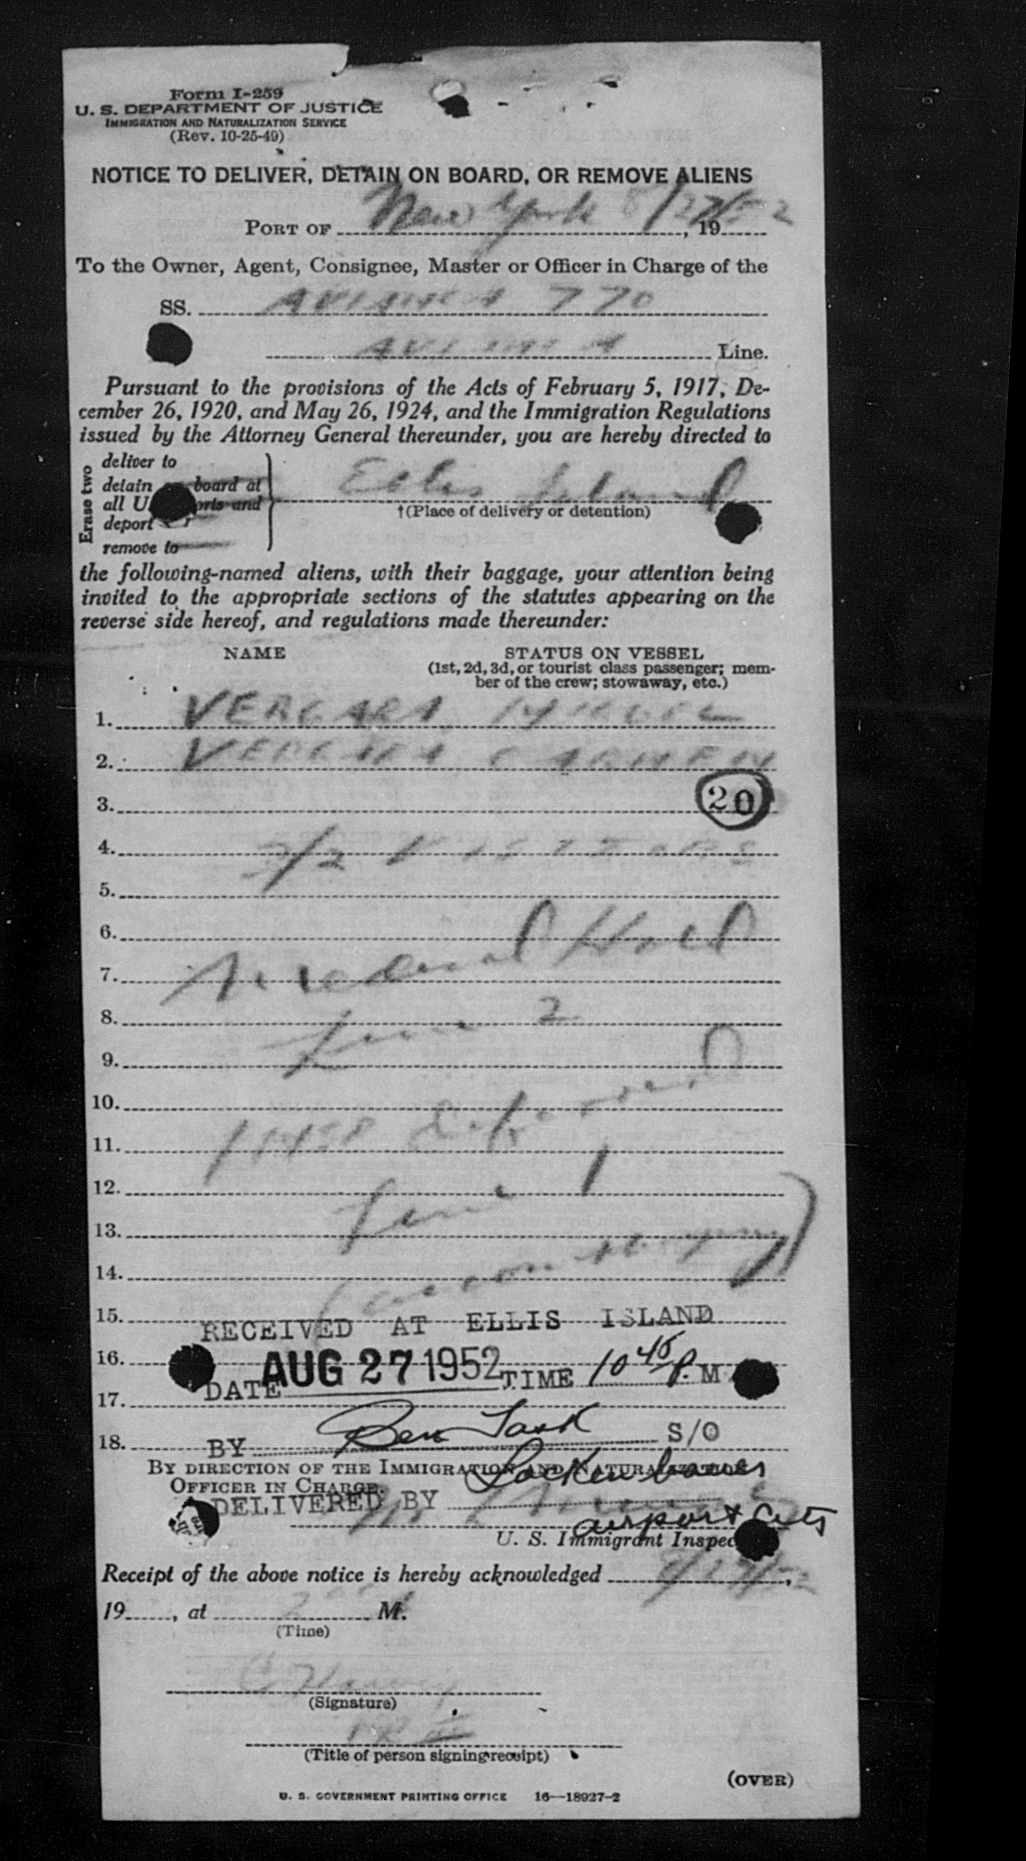 Form I-259
U. S. DEPARTMENT OF JUSTICE
IMMIGRATION AND NATURALIZATION SERVICE
(Rev. 10-25-49)
NOTICE TO DELIVER, DETAIN ON BOARD, OR REMOVE ALIENS
PORT OF New York 8/27/52, 19
To the Owner, Agent, Consignee, Master or Officer in Charge of the
SS. AVIANCA 770
AVIANCA Line.
Pursuant to the provisions of the Acts of February 5, 1917, De-
cember 26, 1920, and May 26, 1924, and the Immigration Regulations
issued by the Attorney General thereunder, you are hereby directed to
Erase two
deliver to
detain on board at
all U. ports and
deport
remove to
Ellis Island
†(Place of delivery or detention)
the following-named aliens, with their baggage, your attention being
invited to the appropriate sections of the statutes appearing on the
reverse side hereof, and regulations made thereunder:
NAME
STATUS ON VESSEL
(1st, 2d, 3d, or tourist class passenger; mem-
ber of the crew; stowaway, etc.)
1. VERGARA MIGUEL
2. VERGARA CARMEN
3. 20
4. 3/2 VISITORS
5.
6.
7. Medical Hold
8.
9. Line 2
10.
11. Deferred
12.
13. Line 1
14.
15. (accompanying)
RECEIVED AT ELLIS ISLAND
16.
DATE AUG 27 1952 TIME 10 45 P. M
17.
18. BY Ben S/O
BY DIRECTION OF THE IMMIGRATION AND NATURALIZATION
OFFICER IN CHARGE.
DELIVERED BY
airport
U. S. Immigrant Inspec
Receipt of the above notice is hereby acknowledged 8/27/52,
19, at M.
(Time)
(Signature)
(Title of person signing receipt)
(OVER)
U. S. GOVERNMENT PRINTING OFFICE 16—18927-2